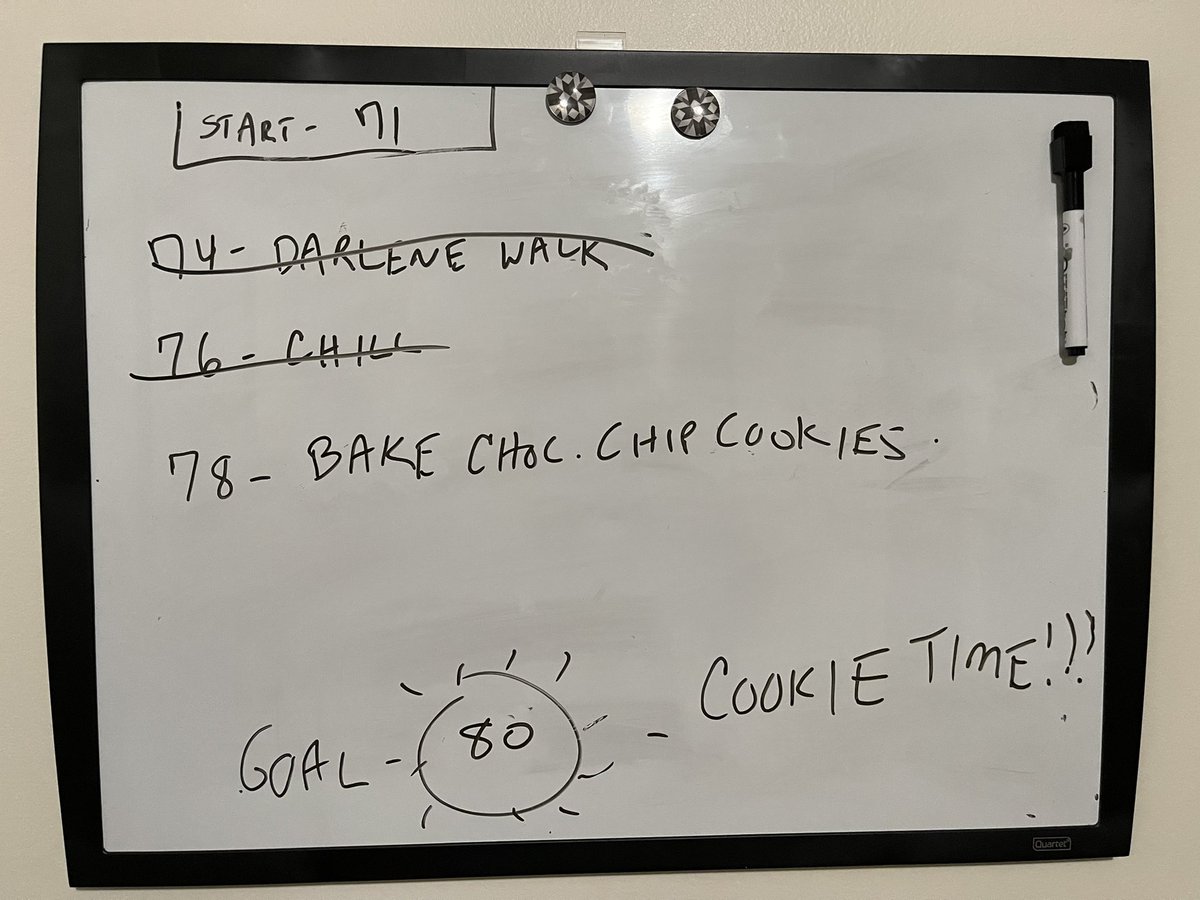 START- 71
74- DARLENE WALK
76- CHILL
78- BAKE CHOC. CHIP COOKIES.
GOAL- 80 - COOKIE TIME!!!
Quartet